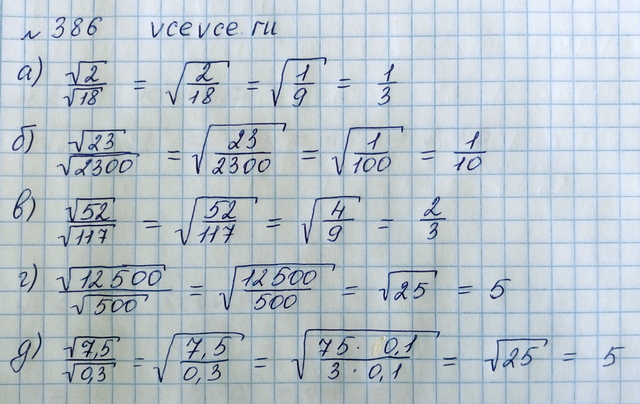 № 386 vcevce.ru
а) √2/√18 = √(2/18) = √(1/9) = 1/3
б) √23/√2300 = √(23/2300) = √(1/100) = 1/10
в) √52/√117 = √(52/117) = √(4/9) = 2/3
г) √12500/√500 = √(12500/500) = √25 = 5
д) √7,5/√0,3 = √(7,5/0,3) = √(75 · 0,1/3 · 0,1) = √25 = 5